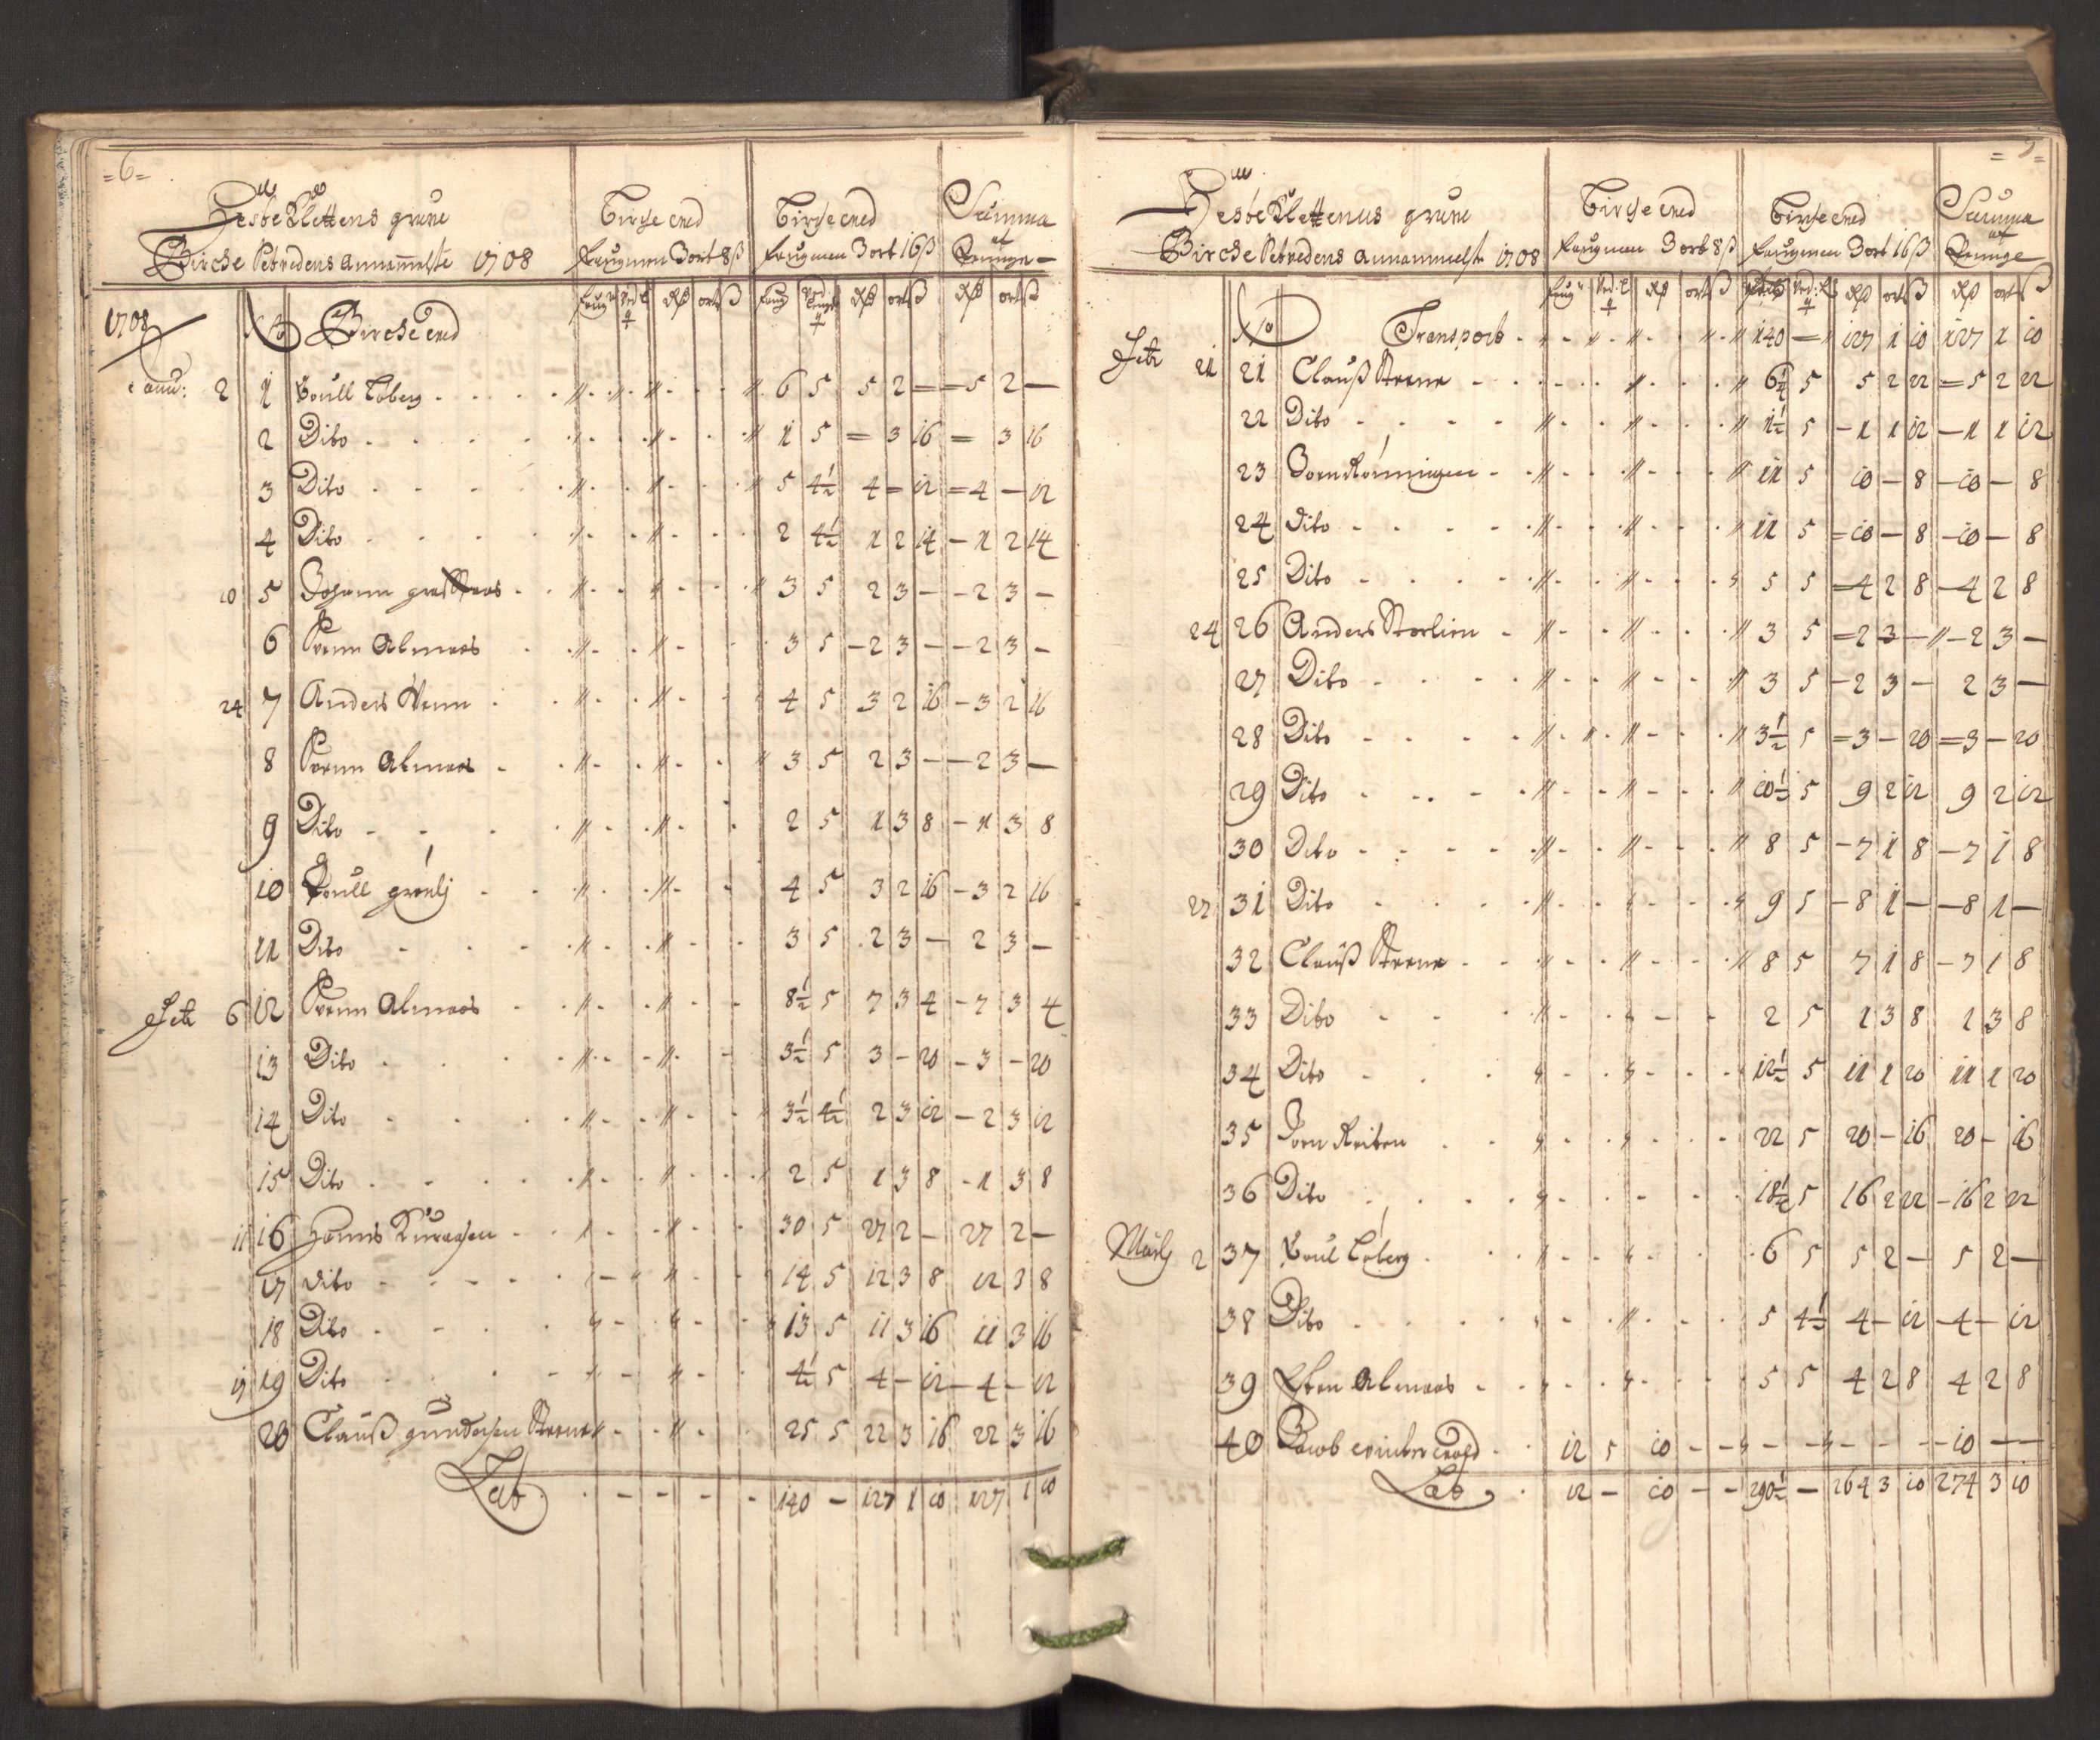 =6=
Hesbe Klettens grube
Birche Vedens annammelse 1708
Birche ved
faugnen 3 ort 8 ß
Birche ved
faugnen 3 ort 16 ß
Summa
af
Penninge
faug Ved L q | Rdr ort ß | faug Ved Lengde q | Rdr ort ß | Rdr ort ß
1708 No Birche Ved
Janu: 2 1 Poull Loberg 6 5 5 2 = = 5 2 —
2 Dito 1 5 = 3 16 = 3 16
3 Dito 5 4½ 4 = 12 = 4 — 12
4 Dito 2 4½ 1 2 14 — 1 2 14
10 5 Johann 3 5 2 3 — — 2 3 —
6 Svenn Almaas 3 5 — 2 3 — — 2 3 —
24 7 Anders Venn 4 5 3 2 16 — 3 2 16
8 Svenn Almaas 3 5 2 3 — — 2 3 —
9 Dito 2 5 1 3 8 — 1 3 8
10 Poull grønlj 4 5 3 2 16 — 3 2 16
11 Dito 3 5 2 3 — 2 3 —
Febr 6 12 Svenn Almaas 8½ 5 7 3 4 — 7 3 4
13 Dito 3½ 5 3 — 20 — 3 — 20
14 Dito 3½ 4½ 2 3 12 — 2 3 12
15 Dito 2 5 1 3 8 — 1 3 8
11 16 Hanns Kuraasen 30 5 27 2 — 27 2 —
17 Dito 14 5 12 3 8 12 3 8
18 Dito 13 5 11 3 16 11 3 16
17 19 Dito 4½ 5 4 — 12 — 4 — 12
20 Clauß gundersen Steene 25 5 22 3 16 22 3 16
Lat 140 — 127 1 10 127 1 10
=7=
Hesbe Klettenus grube
Birche Vedens annammelse 1708
Birche ved
faugnen 3 ort 8 ß
Birche ved
faugnen 3 ort 16 ß
Summa
af
Penninge
faug Ved: L q | Rdr ort ß | Ved: L q | Rdr ort ß | Rdr ort ß
No Transport 140 — 127 1 10 127 1 10
Febr 21 21 Clauß Steene 6½ 5 5 2 22 = 5 2 22
22 Dito 1½ 5 — 1 1 12 — 1 1 12
23 Joen Rønningen 11 5 10 — 8 — 10 — 8
24 Dito 11 5 = 10 — 8 — 10 — 8
25 Dito 5 5 = 4 2 8 — 4 2 8
24 26 Anders Storlien 3 5 = 2 3 — — 2 3 —
27 Dito 3 5 — 2 3 — 2 3 —
28 Dito 3½ 5 = 3 — 20 = 3 — 20
29 Dito 10½ 5 9 2 12 9 2 12
30 Dito 8 5 — 7 1 8 — 7 1 8
27 31 Dito 9 5 — 8 1 — — 8 1 —
32 Clauß Steene 8 5 7 1 8 — 7 1 8
33 Dito 2 5 1 3 8 1 3 8
34 Dito 12½ 5 11 1 20 11 1 20
35 Joen Reiten 22 5 20 — 16 20 — 16
36 Dito 18½ 5 16 2 22 — 16 2 22
Marty 2 37 Poul Loberg 6 5 5 2 — 5 2 —
38 Dito 5 4½ 4 — 12 — 4 — 12
39 Esten Almaas 5 5 4 2 8 4 2 8
40 Jacob 12 5 10 — — — — — — — 10 — —
Lat 12 — 10 — — 290½ — 264 3 10 274 3 10